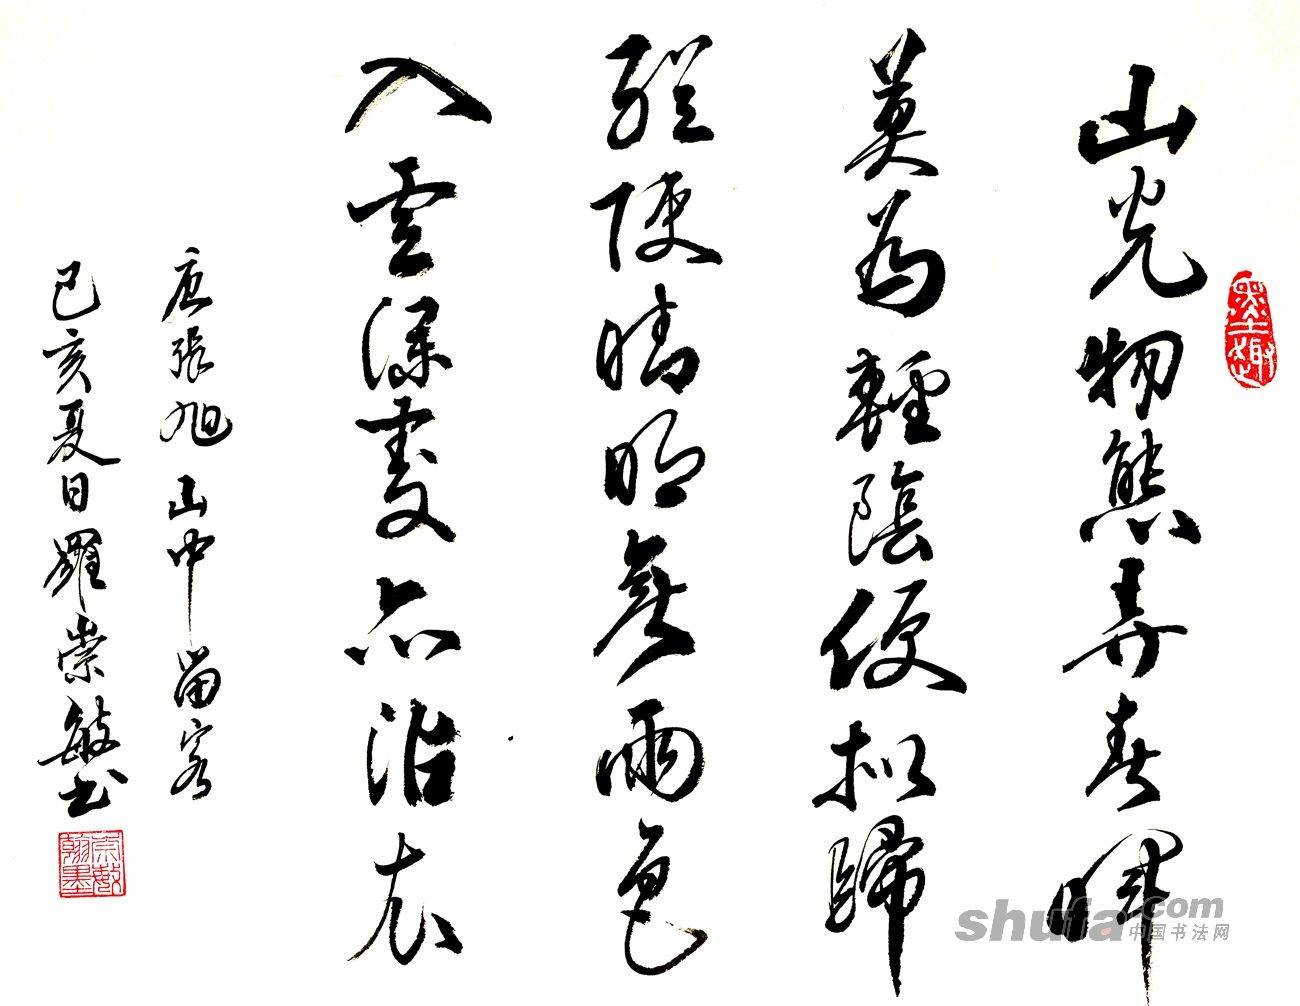 墨趣
山光物態弄春暉
莫為輕陰便拟歸
縱使晴明無雨色
入雲深處亦沾衣
唐張旭山中留客
己亥夏日羅崇敏书
崇敏翰墨
shufa.com
中国书法网